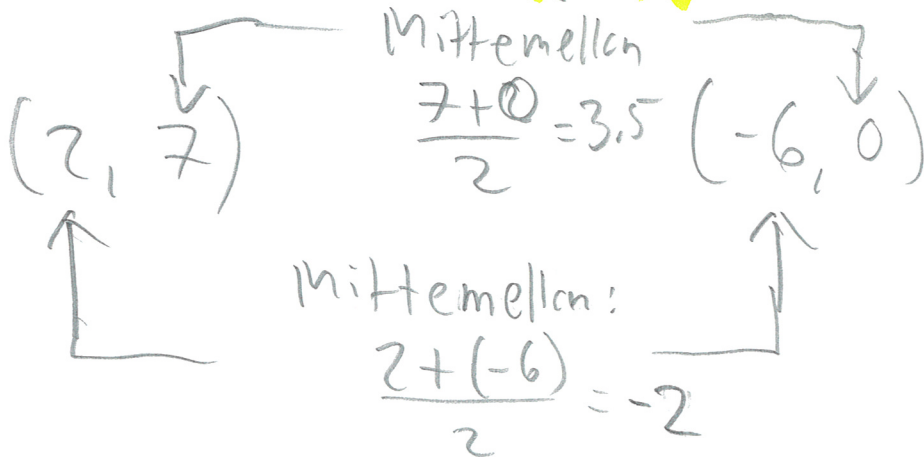 Mittemellan
(2, 7) (7+0)/2 = 3.5 (-6, 0)
Mittemellan:
(2+(-6))/2 = -2